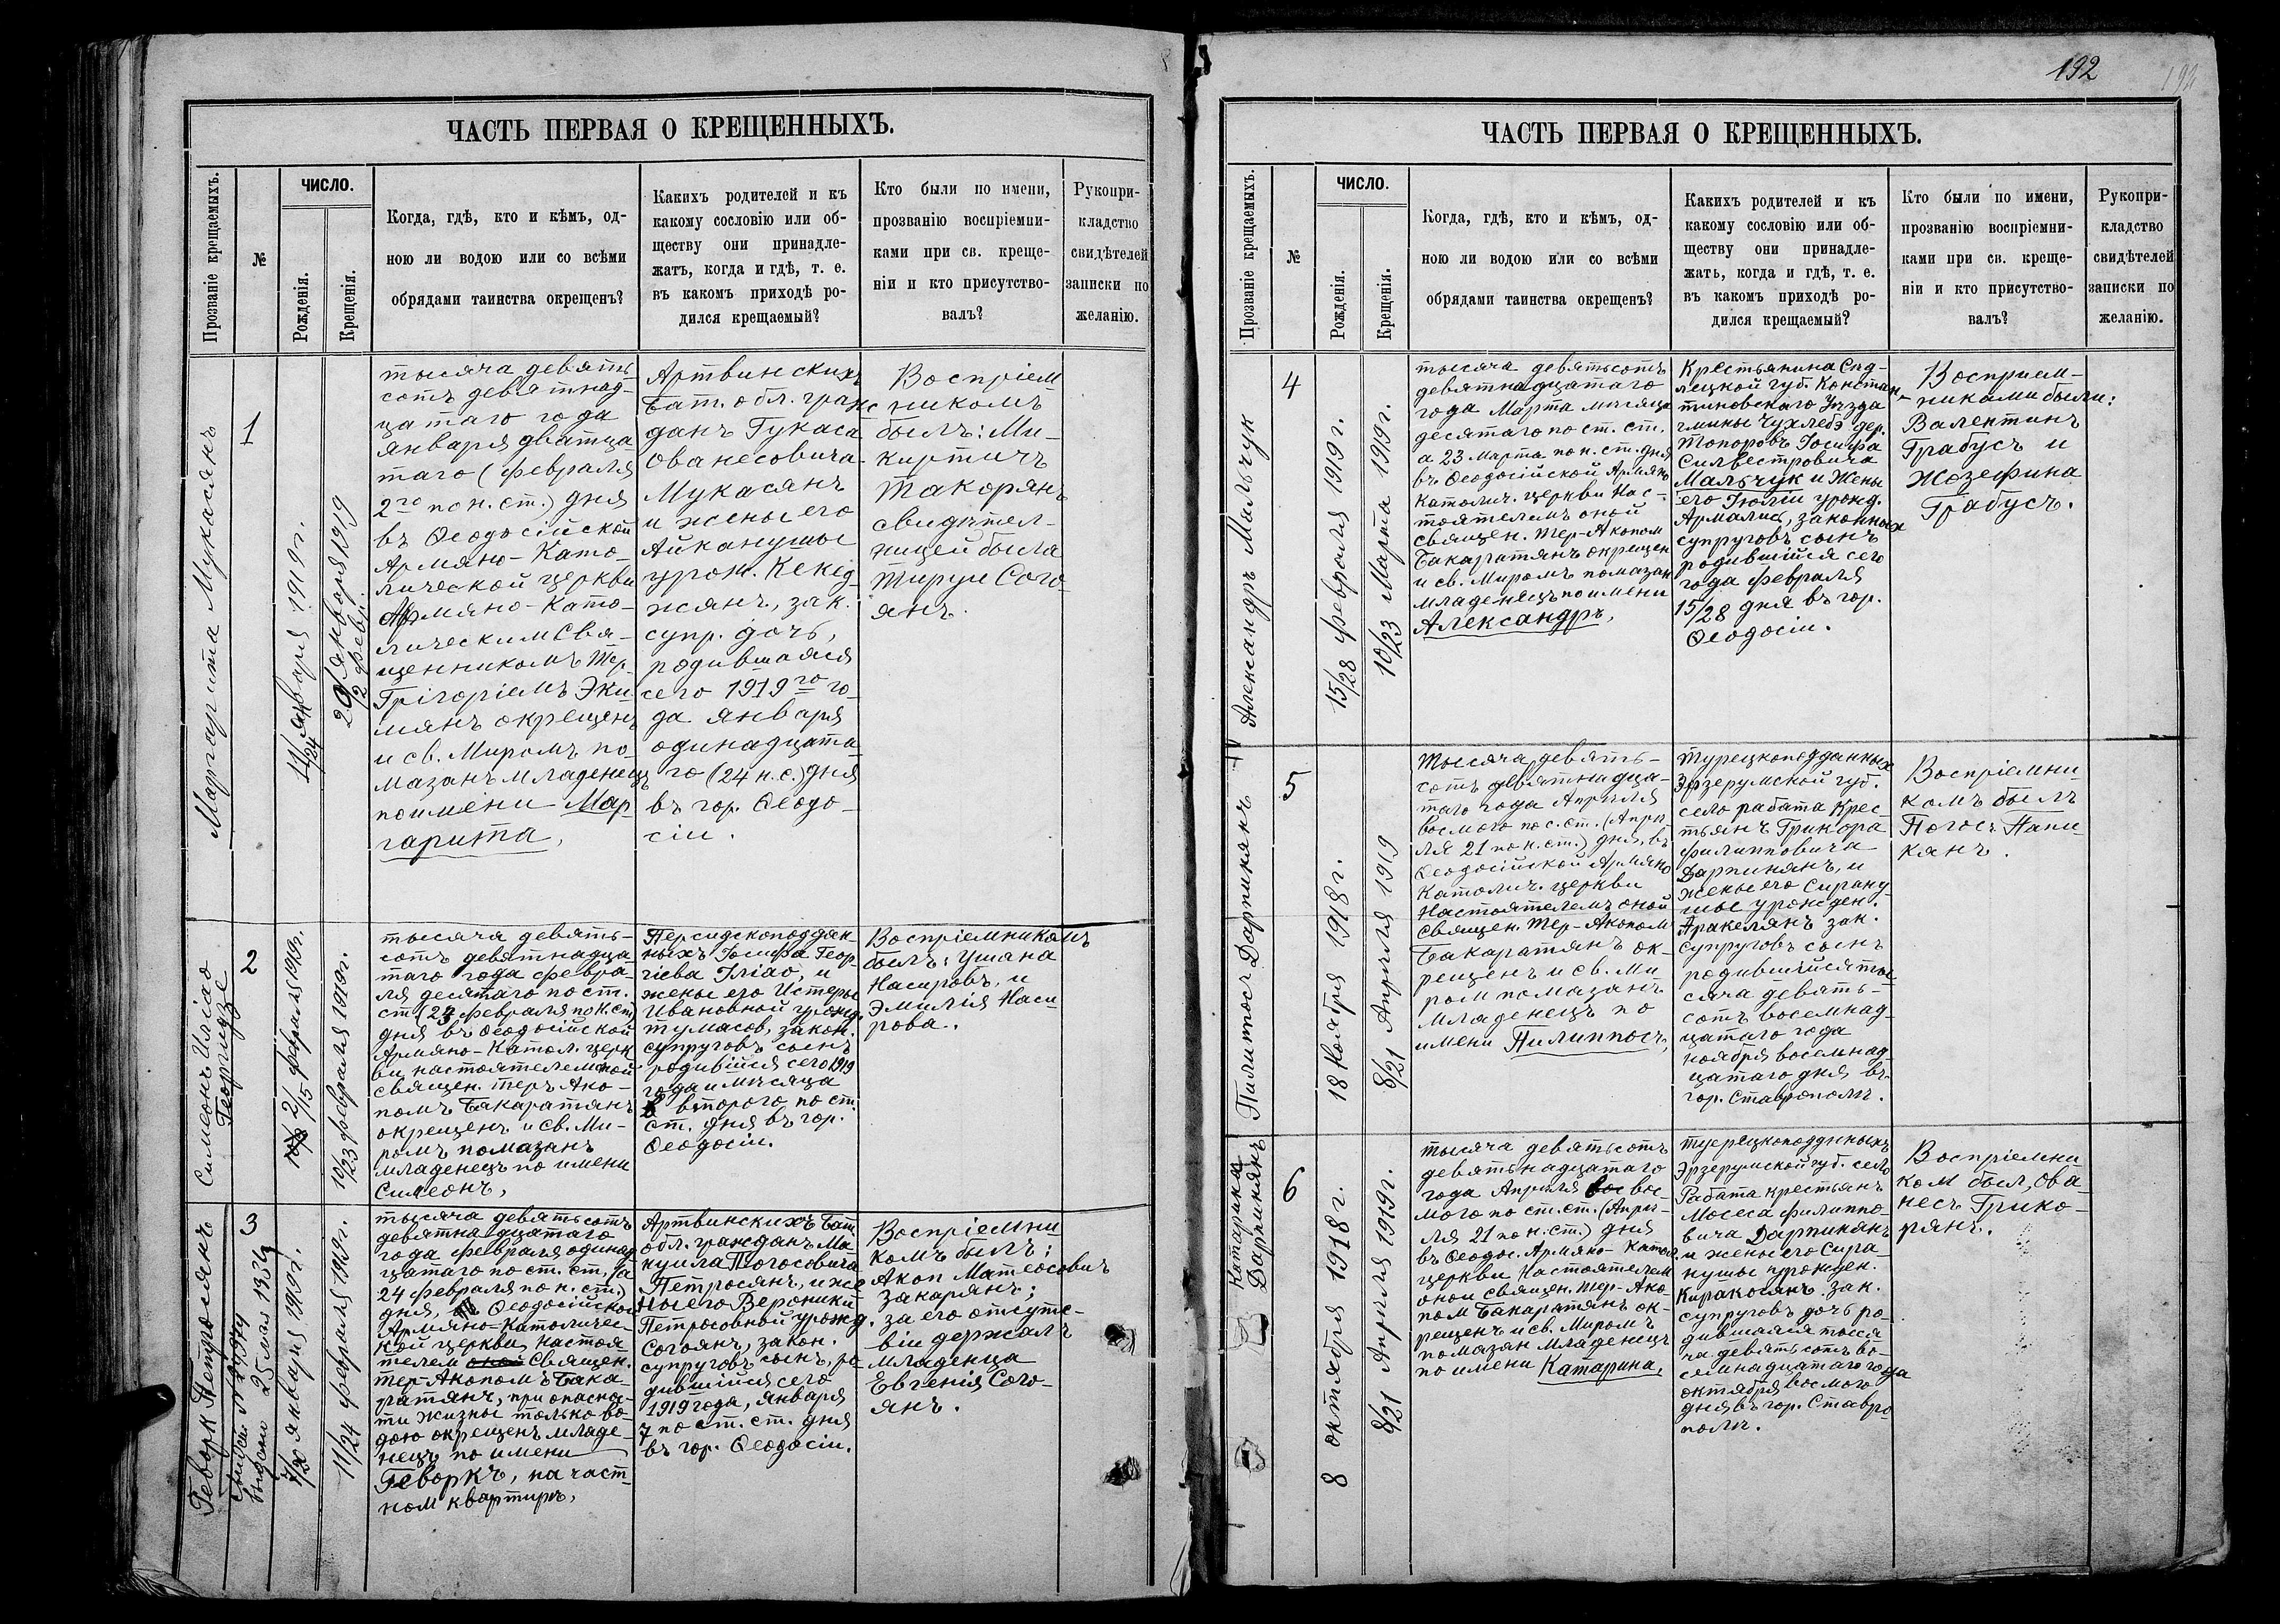 ЧАСТЬ ПЕРВАЯ О КРЕЩЕННЫХЪ.
Прозваніе крещаемыхъ.
№
ЧИСЛО.
Рожденія.
Крещенія.
Когда, гдѣ, кто и кѣмъ, од-
ною ли водою или со всѣми
обрядами таинства окрещенъ?
Какихъ родителей и къ
какому сословію или об-
ществу они принадле-
жатъ, когда и гдѣ, т. е.
въ какомъ приходѣ ро-
дился крещаемый?
Кто были по имени,
прозванію воспріемни-
ками при св. креще-
ніи и кто присутство-
валъ?
Рукопри-
кладство
свидѣтелей
записки по
желанію.
Маргарита Мукасянъ
1
11/24 января 1919 г.
20 января 1919
/2 февр.
тысяча девять
сотъ девятнад-
цатаго года
января дватца
таго (февраля
2го по н. ст.) дня
въ Ѳеодосійской
Армяно-Като-
лической церкви
Армяно-Като-
лическимъ Свя-
щенникомъ Тер
Грігоріемъ Эки
мянъ окрещенъ
и св. Миромъ по
мазанъ младенецъ
по имени Мар-
гарита,
Артвинскихъ
Бат. обл. граж
данъ Гукаса
Ованесовича
Мукасянъ
и жены его
Айканушы
урож. Кекед-
жянъ, зак.
супр. дочь,
родившаяся
сего 1919го го-
да января
одинадцата
го (24 н. с.) дня
въ гор. Ѳеодо-
сіи.
Воспріем
никомъ
былъ: Ми-
киртичъ
Такорянъ
свидѣтел-
ницей была
Тируи Сого
янъ.
Симеонъ Иліао
Георгидзе
2
2/15 февраля 1919г.
10/23 февраля 1919г.
тысяча девять-
сотъ девятнадца
таго года февра-
ля десятаго по ст.
ст. (23 февраля по н. ст)
дня въ Ѳеодосійской
Армяно-Катол. церк
ви, настоятелем оной
священ. теръ Ако-
помъ Бакаратянъ
окрещенъ и св. Ми-
ромъ помазанъ
младенецъ по имени
Симеонъ,
Персидскоподдан-
ныхъ Іосифа Геор-
гіева Іліао, и
жены его Истеры
Ивановной урожд.
Тумасов, закон.
супруговъ сынъ
родивійся сего 1919
года и мѣсяца
второго по ст.
ст. дня въ гор.
Ѳеодосіи.
Воспріемникомъ
былъ: Ушана
Насировъ, и
Эмилія Наси
рова.
Геворк Петросянъ
3
выдан 25 мая 1936
7/20 января 1919г.
11/24 февраля 1919г.
тысяча девятьсотъ
девятнадцатаго
года февраля одинад
цатаго по ст. ст. (а
24 февраля по н. ст.)
дня, въ Ѳеодосійской
Армяно-Католичес
кой церкви, настоя
телем оной Священ.
тер-Акопомъ Бака-
ратянъ, при опаснос-
ти жизны только во-
дою окрещенъ младе-
нецъ по имени
Геворкъ, на част
ном квартирѣ,
Артвинскихъ Бат.
обл. гражданъ Ма-
куила Погосовича
Петросянъ, и же
ны его Вероники
Петросовной урожд.
Согоянъ, закон.
супруговъ сынъ, ро
дившійся сего
1919 года, января
7 по ст. ст. дня
въ гор. Ѳеодосіи.
Воспріемни
комъ былъ:
Акоп Матеосович
Закарянъ;
за его отсутс-
віи держалъ
младенца
Евгенія Сого-
янъ.
192
ЧАСТЬ ПЕРВАЯ О КРЕЩЕННЫХЪ.
Прозваніе крещаемыхъ.
№
ЧИСЛО.
Рожденія.
Крещенія.
Когда, гдѣ, кто и кѣмъ, од-
ною ли водою или со всѣми
обрядами таинства окрещенъ?
Какихъ родителей и къ
какому сословію или об-
ществу они принадле-
жатъ, когда и гдѣ, т. е.
въ какомъ приходѣ ро-
дился крещаемый?
Кто были по имени,
прозванію воспріемни-
ками при св. креще-
ніи и кто присутство-
валъ?
Рукопри-
кладство
свидѣтелей
записки по
желанію.
Александръ Мальчук
4
15/28 февраля 1919 г.
10/23 Марта 1919г.
тысяча девятьсотъ
девятнадцатаго
года Марта мѣсяца
десятаго по ст. ст.
а 23 марта по н. ст. дня
въ Ѳеодосійской Армяно
Католич. церкви Нас-
тоятелемъ оной
священ. Тер-Акопом
Бакаратянъ окрещен
и св. Миромъ помазан
младенецъ по имени
Александръ,
Крестьянина Сѣд-
лецкой губ. Констан-
тиновскаго Уѣзда
гмины Чухлебэ дер.
Топоровъ Іосифа
Силвестровича
Мальчук и Жены
его Гюлги урожд.
Армалис, законных
супруговъ сынъ
родившійся сего
года февраля
15/28 дня въ гор.
Ѳеодосіи.
Восприем-
никами были:
Валентинъ
Грабусъ и
Жозефина
Грабусъ.
Пилиппос Дарпинянъ
5
18 Ноября 1918 г.
8/21 Апрыля 1919
тысяча девять-
сотъ девятнадца-
таго года Апрыля
восмого по с. ст. (Апры
ля 21 по н. ст.) дня, въ
Ѳеодосійской Армяно
Католич. церкви
Настоятелемъ оной
Священ. Тер-Акопом
Бакаратянъ ок-
рещенъ и св. Ми
ром помазанъ
младенецъ по
имени Пилиппосъ,
Турецкоподданных
Эрзерумской губ.
село рабата крес-
тьянъ Грикора
филипповича
Дарпинянъ, и
жены его Сирану
шы урожден.
Аракелянъ зак.
Супруговъ сынъ
родившійся ты
сяча девять-
сотъ восемнад-
цатаго года
ноября восемнад-
цатаго дня въ
гор. Ставрополѣ.
Воспріемни
комъ былъ
Погосъ Папи-
кянъ.
Катарина
Дарпинянъ
6
8 октября 1918 г.
8/21 Апрыля 1919г.
тысяча девятьсотъ
девятьнадцатаго
года Апрыля вос-
мого по ст. ст. (Апры-
ля 21 по н. ст.) дня
въ Ѳеодос. Армяно-Катол.
церкви Настоятелем
оной священ. Тер-Ако
пом Бакаратянъ ок-
рещенъ и св. Миромъ
помазан младенецъ
по имени Катарина,
туерецкоподдныхъ
Эрзерумской губ. село
Рабата крестьянъ
Мосеса филиппо-
вича Дарпинянъ
и жены его Сира-
нушы урожден.
Киракосянъ. зак.
супруговъ дочь ро-
дившаяся тыся
ча девятьсотъ во-
семнадцатаго года
октября восмого
дня въ гор. Ставро
полѣ.
Воспріемни
ком был, Ова-
несъ Грико-
рянъ.